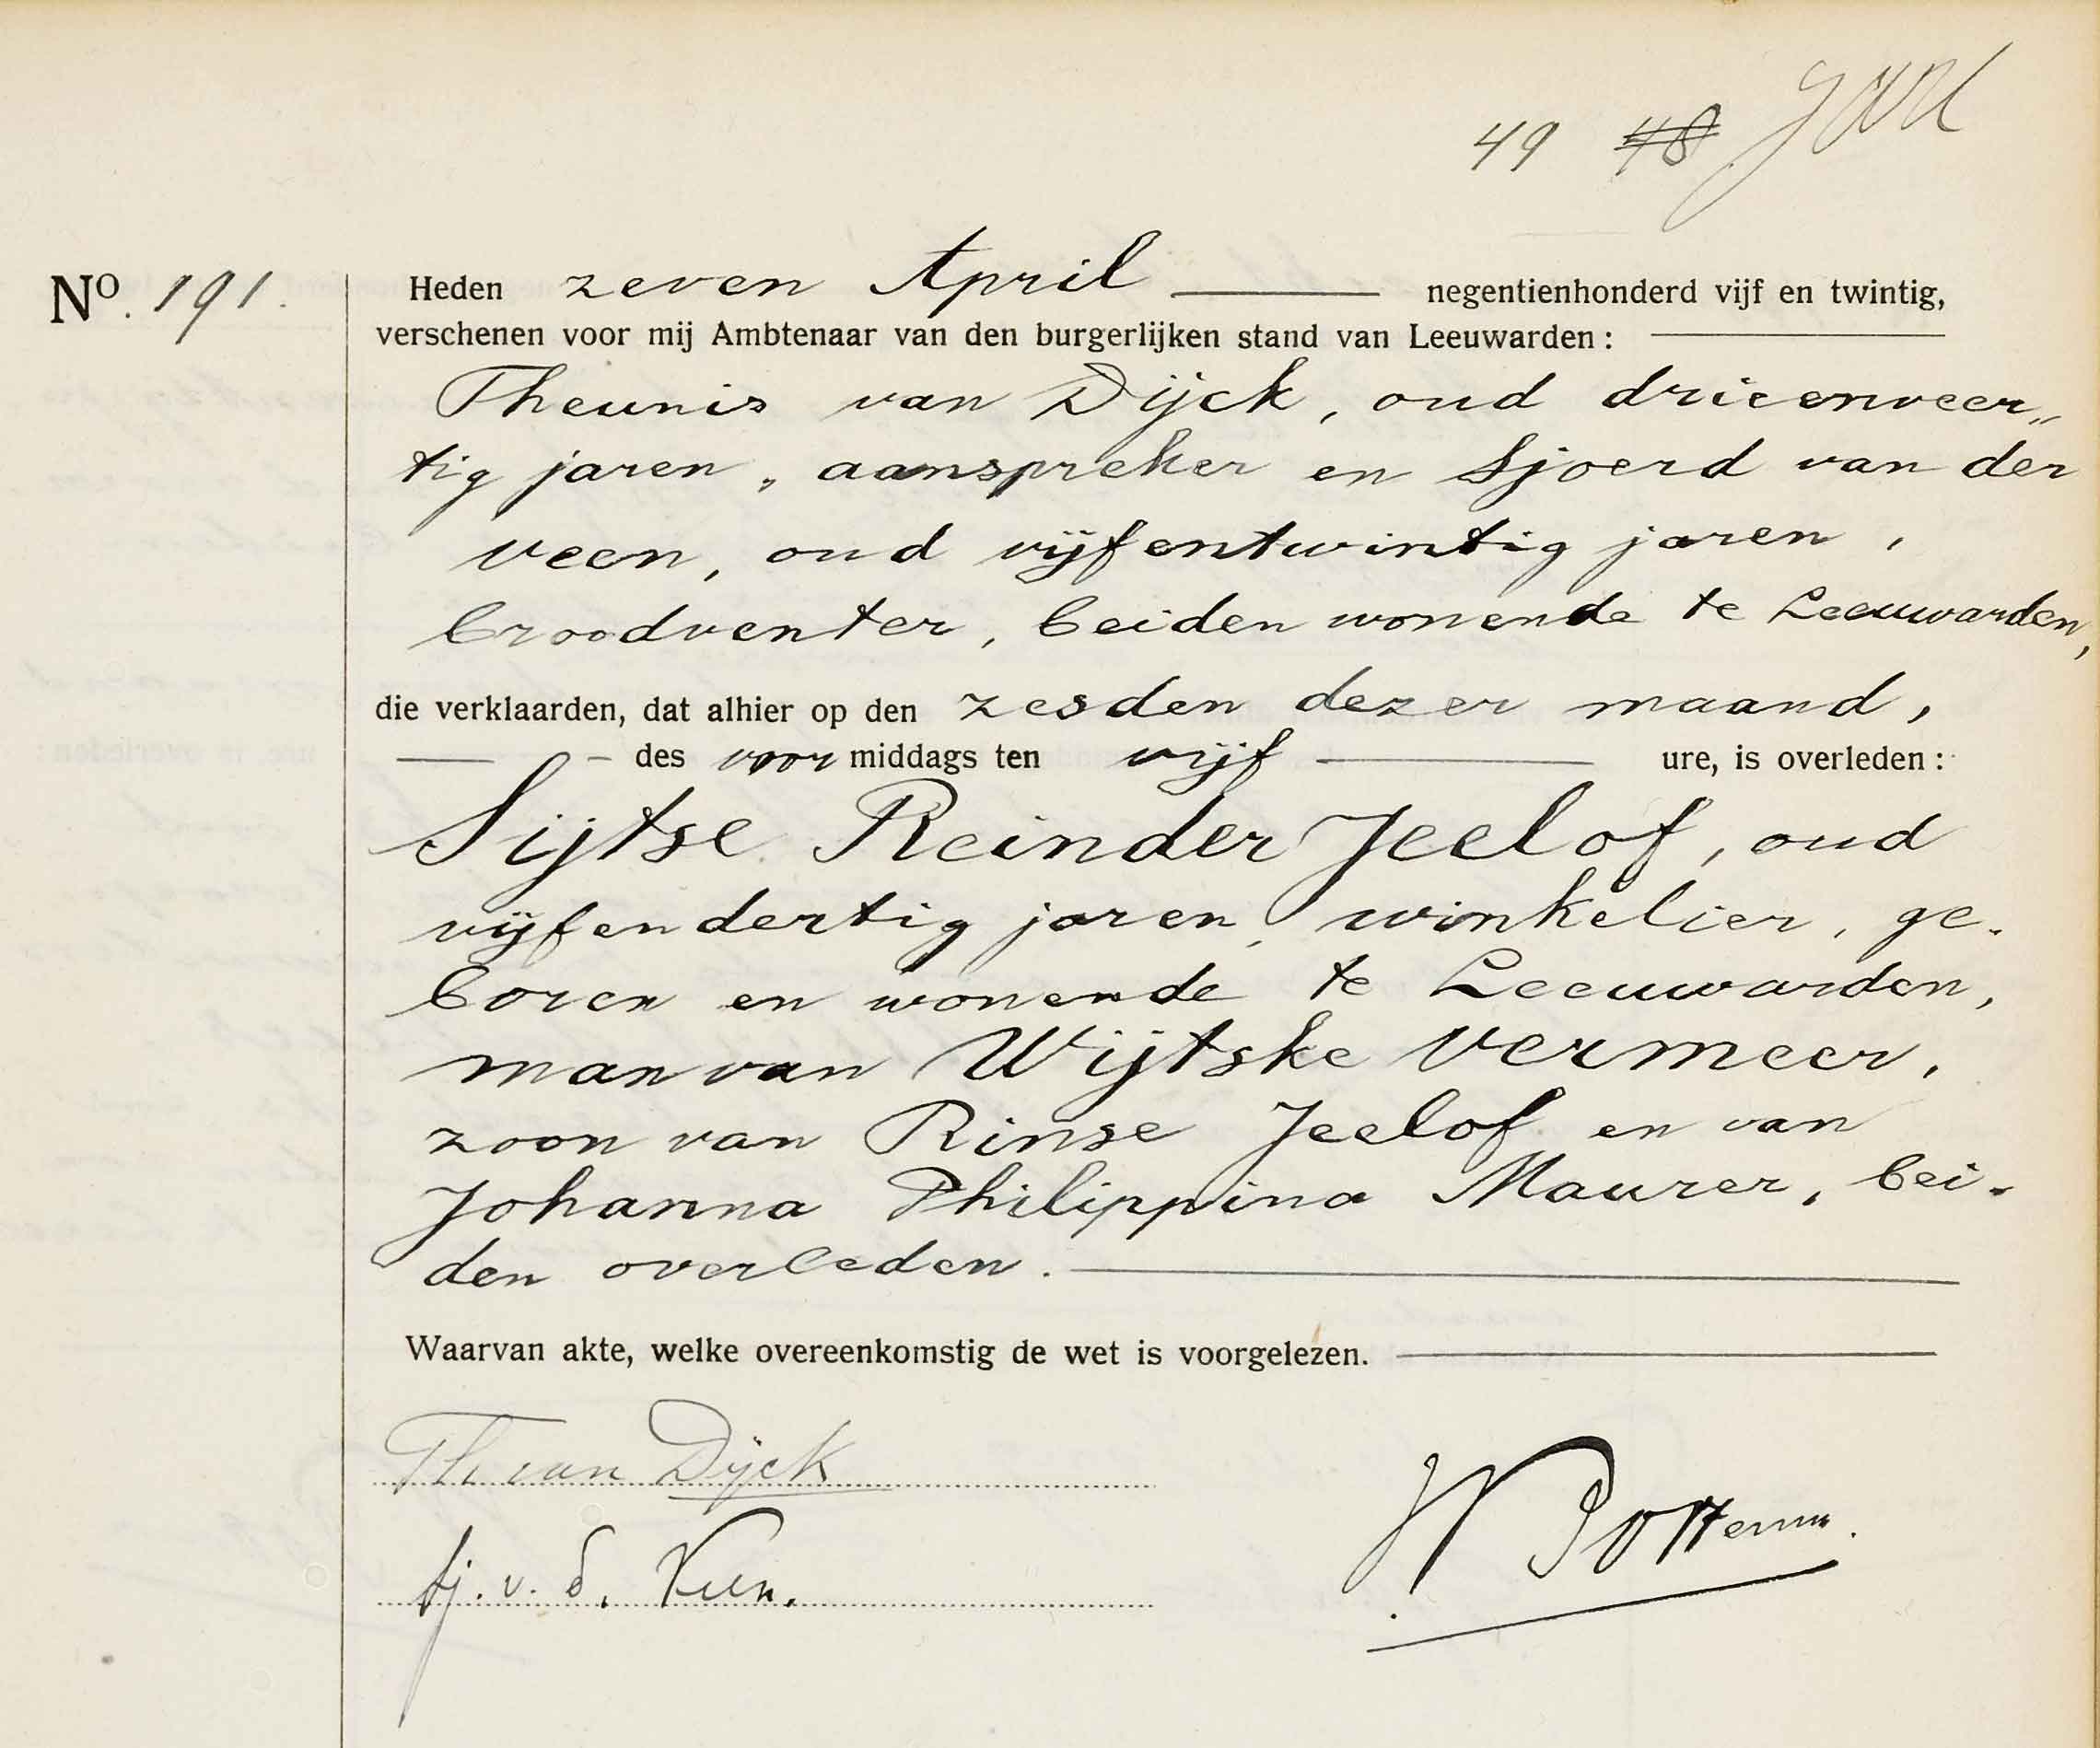 49 48
No. 191.
Heden zeven April negentienhonderd vijf en twintig,
verschenen voor mij Ambtenaar van den burgerlijken stand van Leeuwarden:
Theunis van Dijck, oud drieenveer„
tig jaren, aanspreker en Sjoerd van der
Veen, oud vijfentwintig jaren,
broodventer, beiden wonende te Leeuwarden,
die verklaarden, dat alhier op den zesden dezer maand,
des voor middags ten vijf ure, is overleden:
Sijtse Reinder Jeelof, oud
vijfendertig jaren, winkelier, ge-
boren en wonende te Leeuwarden,
man van Wijtske Vermeer,
zoon van Rinse Jeelof en van
Johanna Philippina Maurer, bei-
den overleden.
Waarvan akte, welke overeenkomstig de wet is voorgelezen.
Th van Dijck
Sj. v. d. Veen.